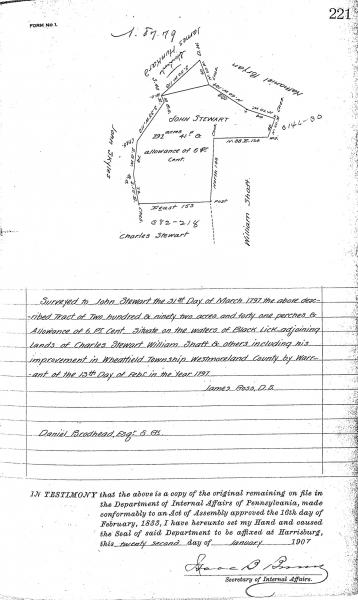 221
FORM NO 1.
1.87.79
James Munkard
Nathaniel Bryan
John Skyles
JOHN STEWART
292 acres 41 ps &
allowance of 6 Pr
Cent.
C 142-30
N 88 E 126
Post
N east 153
C 82-218
Charles Stewart
William Shatt.
Surveyed to John Stewart the 31st Day of March 1797 the above des-
cribed Tract of Two hundred & ninety two acres and forty one perches &
Allowance of 6 Pr. Cent. Situate on the waters of Black Lick adjoining
Lands of Charles Stewart William Shatt & others including his
improvement in Wheatfield Township Westmoreland County by Warr-
ant of the 13th Day of Febr. in the Year 1797
James Ross, D.S.
Daniel Brodhead, Esqr S. G.
IN TESTIMONY that the above is a copy of the original remaining on file in
the Department of Internal Affairs of Pennsylvania, made
conformably to an Act of Assembly approved the 16th day of
February, 1833, I have hereunto set my Hand and caused
the Seal of said Department to be affixed at Harrisburg,
this twenty second day of January 1907
Isaac B Brown
Secretary of Internal Affairs.